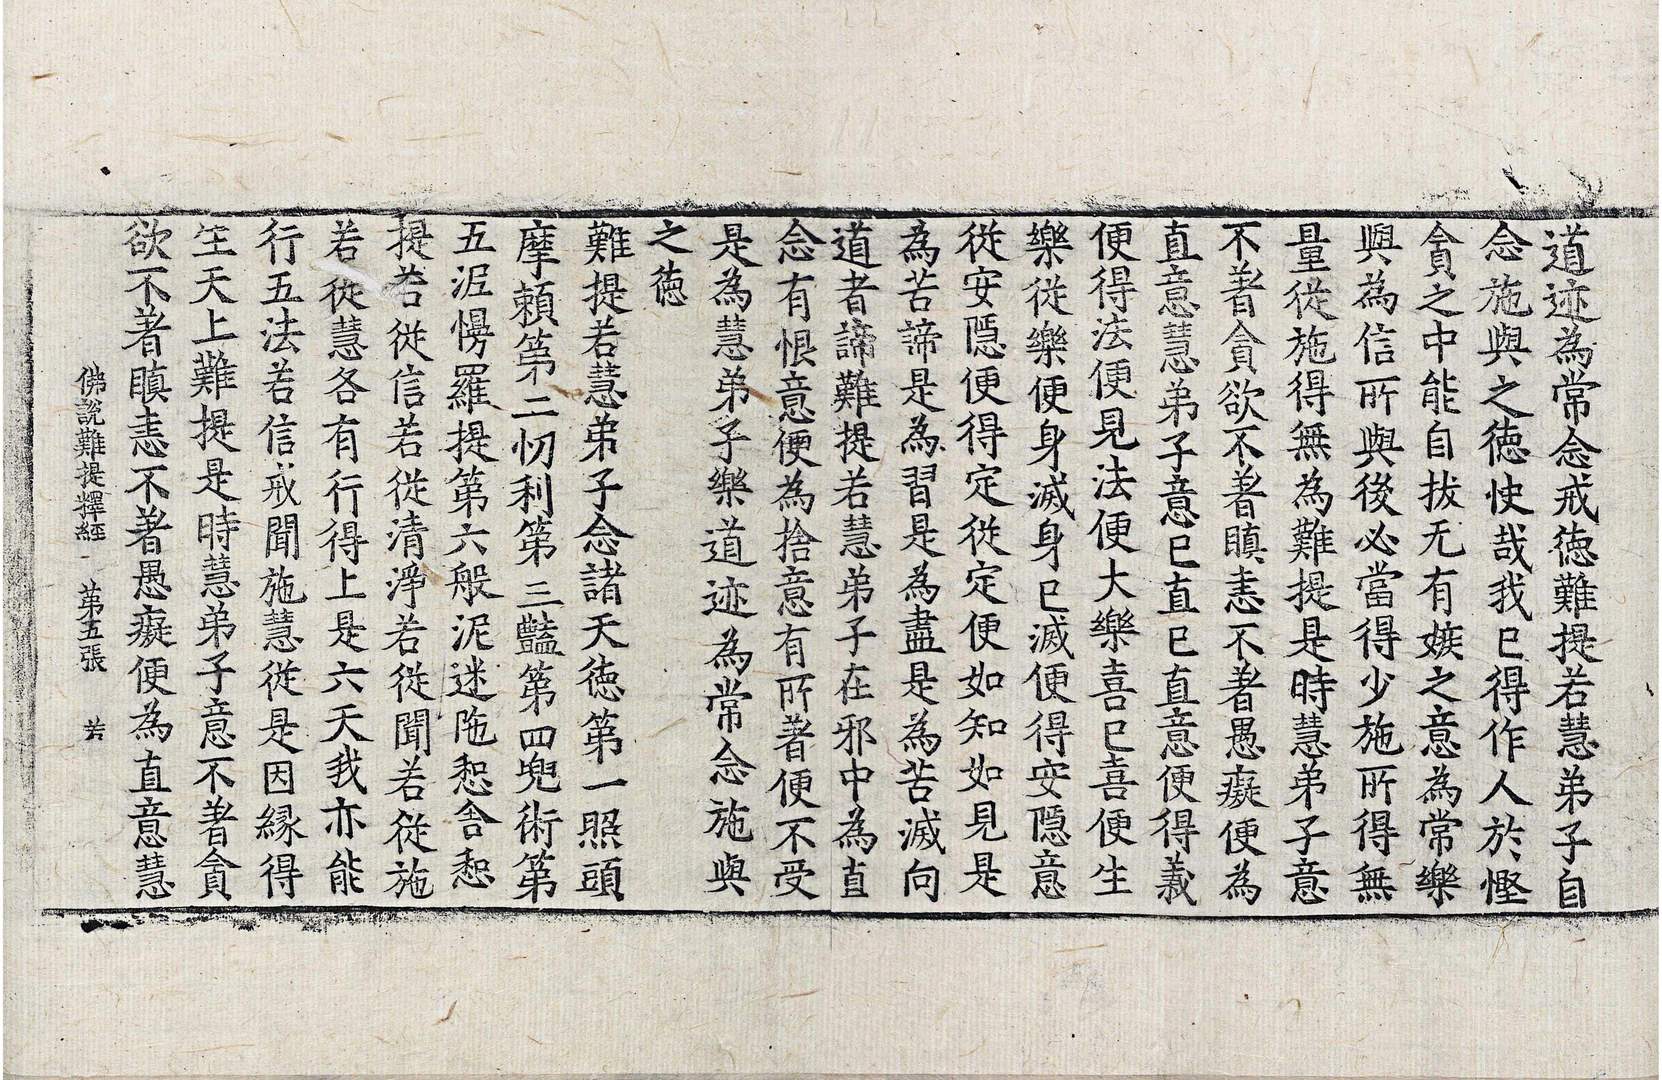 道迹為常念戒徳難提若慧弟子自
念施與之徳快哉我已得作人於慳
貪之中能自拔无有嫉之意為常樂
與為信所與後必當得少施所得無
量從施得無為難提是時慧弟子意
不著貪欲不著瞋恚不著愚癡便為
直意慧弟子意已直已直意便得義
便得法便見法便大樂喜已喜便生
樂從樂便身滅身已滅便得安隱意
從安隱便得定從定便如知如見是
為苦諦是為習是為盡是為苦滅向
道者諦難提若慧弟子在邪中為直
念有恨意便為捨意有所著便不受
是為慧弟子樂道迹為常念施與
之徳
難提若慧弟子念諸天徳第一照頭
摩賴第二忉利第三豔第四兜術第
五泥愣羅提第六般泥迷陁惒舎惒
提若從信若從清淨若從聞若從施
若從慧各有行得上是六天我亦能
行五法若信戒聞施慧從是因縁得
生天上難提是時慧弟子意不著貪
欲不著瞋恚不著愚癡便為直意慧
佛說難提釋經 第五張 若